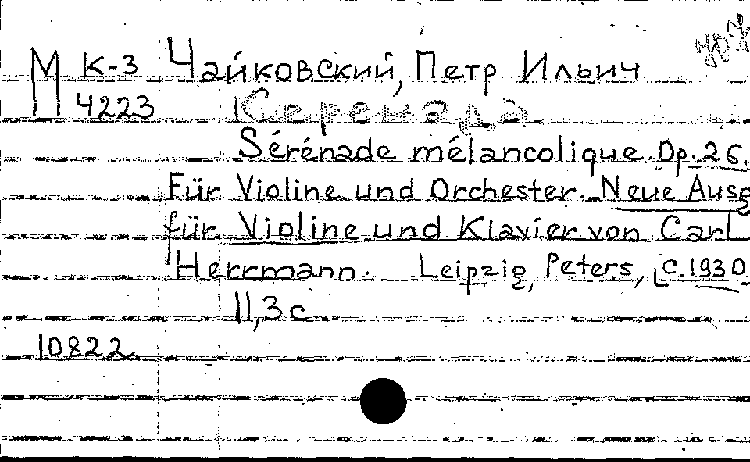 М К-3 Чайковский, Петр Ильич
4223 Серенада
Sérénade mélancolique. Op. 26.
Für Violine und Orchester. Neue Ausg
für Violine und Klavier von Carl
Herrmann. Leipzig, Peters, [c. 1930
11,3 c
10822